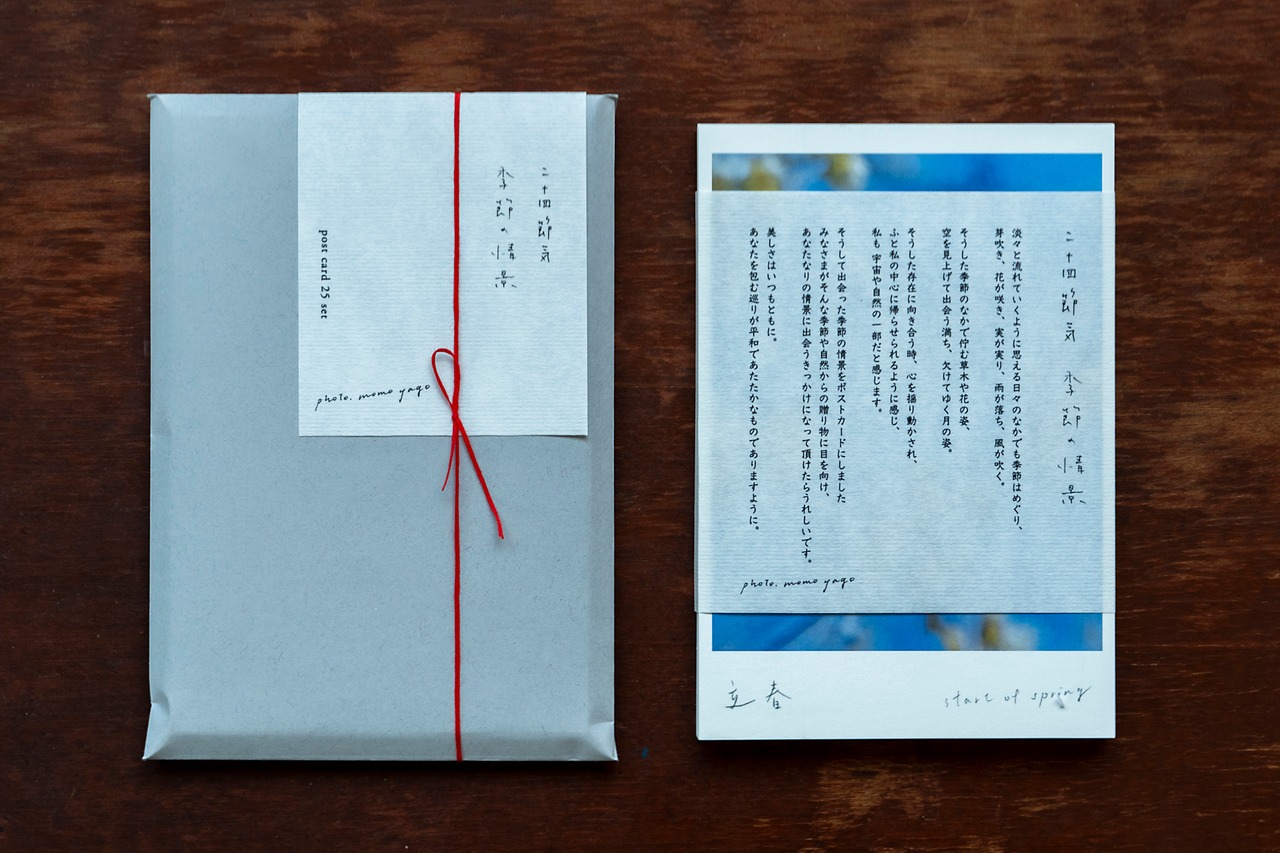 二十四節気
季節の情景
post card 25 set
photo. momo yago
二十四節気 季節の情景
淡々と流れていくように思える日々のなかでも季節はめぐり、
芽吹き、花が咲き、実が実り、雨が落ち、風が吹く。
そうした季節のなかで佇む草木や花の姿、
空を見上げて出会う満ち、欠けてゆく月の姿。
そうした存在に向き合う時、心を揺り動かされ、
ふと私の中心に帰らせられるように感じ、
私も 宇宙や自然の一部だと感じます。
そうして出会った季節の情景をポストカードにしました
みなさまがそんな季節や自然からの贈り物に目を向け、
あなたなりの情景に出会うきっかけになって頂けたらうれしいです。
美しさはいつもともに。
あなたを包む巡りが平和であたたかなものでありますように。
photo. momo yago
立春
start of spring